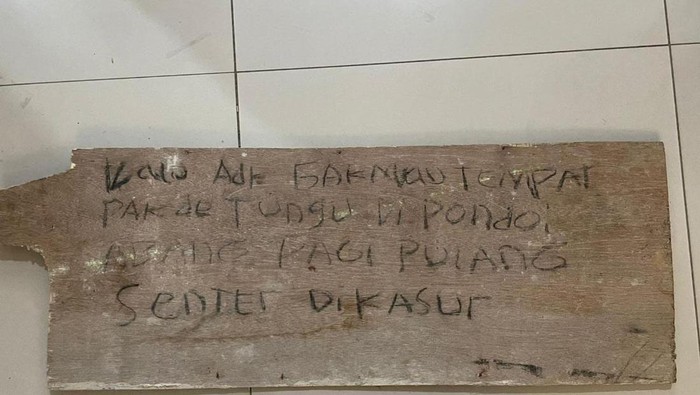 Kalo Adk GAKMAU TEMPAT
PAKde TUNGU Di PONdoi
ABANG PAGI PULANG
SeNTEr DiKASUr